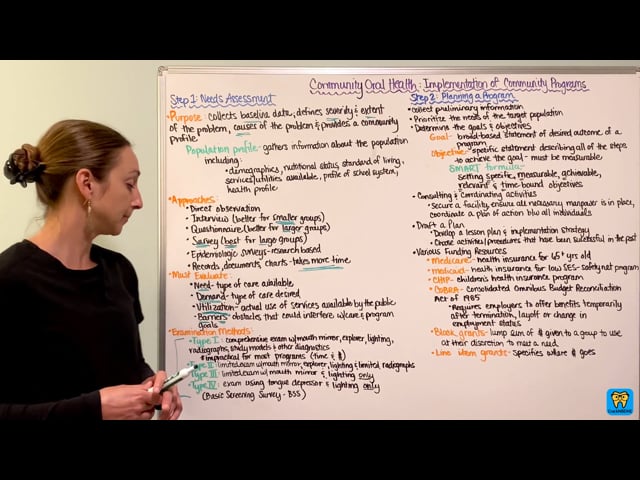 Community Oral Health: Implementation of Community Programs
Step 1: Needs Assessment
• Purpose: collects baseline data, defines severity & extent
of the problem, causes of the problem & provides a community
profile
Population profile - gathers information about the population
including:
• demographics, nutritional status, standard of living,
services/utilities available, profile of school system,
health profile
• Approaches:
• Direct observation
• Interview (better for smaller groups)
• Questionnaire (better for larger groups)
• Survey (best for large groups)
• Epidemiologic surveys - research based
• Records, documents, charts - takes more time
• Must Evaluate:
• Need - type of care available
• Demand - type of care desired
• Utilization - actual use of services available by the public
• Barriers - obstacles that could interfere w/care & program
goals
• Examination Methods:
• Type I: comprehensive exam w/mouth mirror, explorer, lighting,
radiographs, study models & other diagnostics
• impractical for most programs (time & $)
• Type II: limited exam w/mouth mirror, explorer, lighting & limited radiographs
• Type III: limited exam w/ mouth mirror & lighting only
• Type IV: exam using tongue depressor & lighting only
(Basic Screening Survey - BSS)
Step 2: Planning a Program
• collect preliminary information
• Prioritize the needs of the target population
• Determine the goals & objectives
Goal - broad-based statement of desired outcome of a
program
Objective - specific statement describing all of the steps
to achieve the goal - must be measurable
SMART formula -
Setting specific, measurable, achievable,
relevant & time-bound objectives
• Consulting & Coordinating activities
• secure a facility, ensure all necessary manpower is in place,
coordinate a plan of action b/w all individuals
• Draft a Plan
• Develop a lesson plan & implementation strategy
• Choose activities/procedures that have been successful in the past
• Various Funding Resources
• Medicare - health insurance for 65+ yrs old
• Medicaid - health insurance for low SES - safety net program
• CHIP - children's health insurance program
• COBRA - Consolidated Omnibus Budget Reconciliation
Act of 1985
• Requires employers to offer benefits temporarily
after termination, layoff or change in
employment status
• Block grants - lump sum of $ given to a group to use
at their discretion to meet a need
• Line item grants - Specifies where $ goes